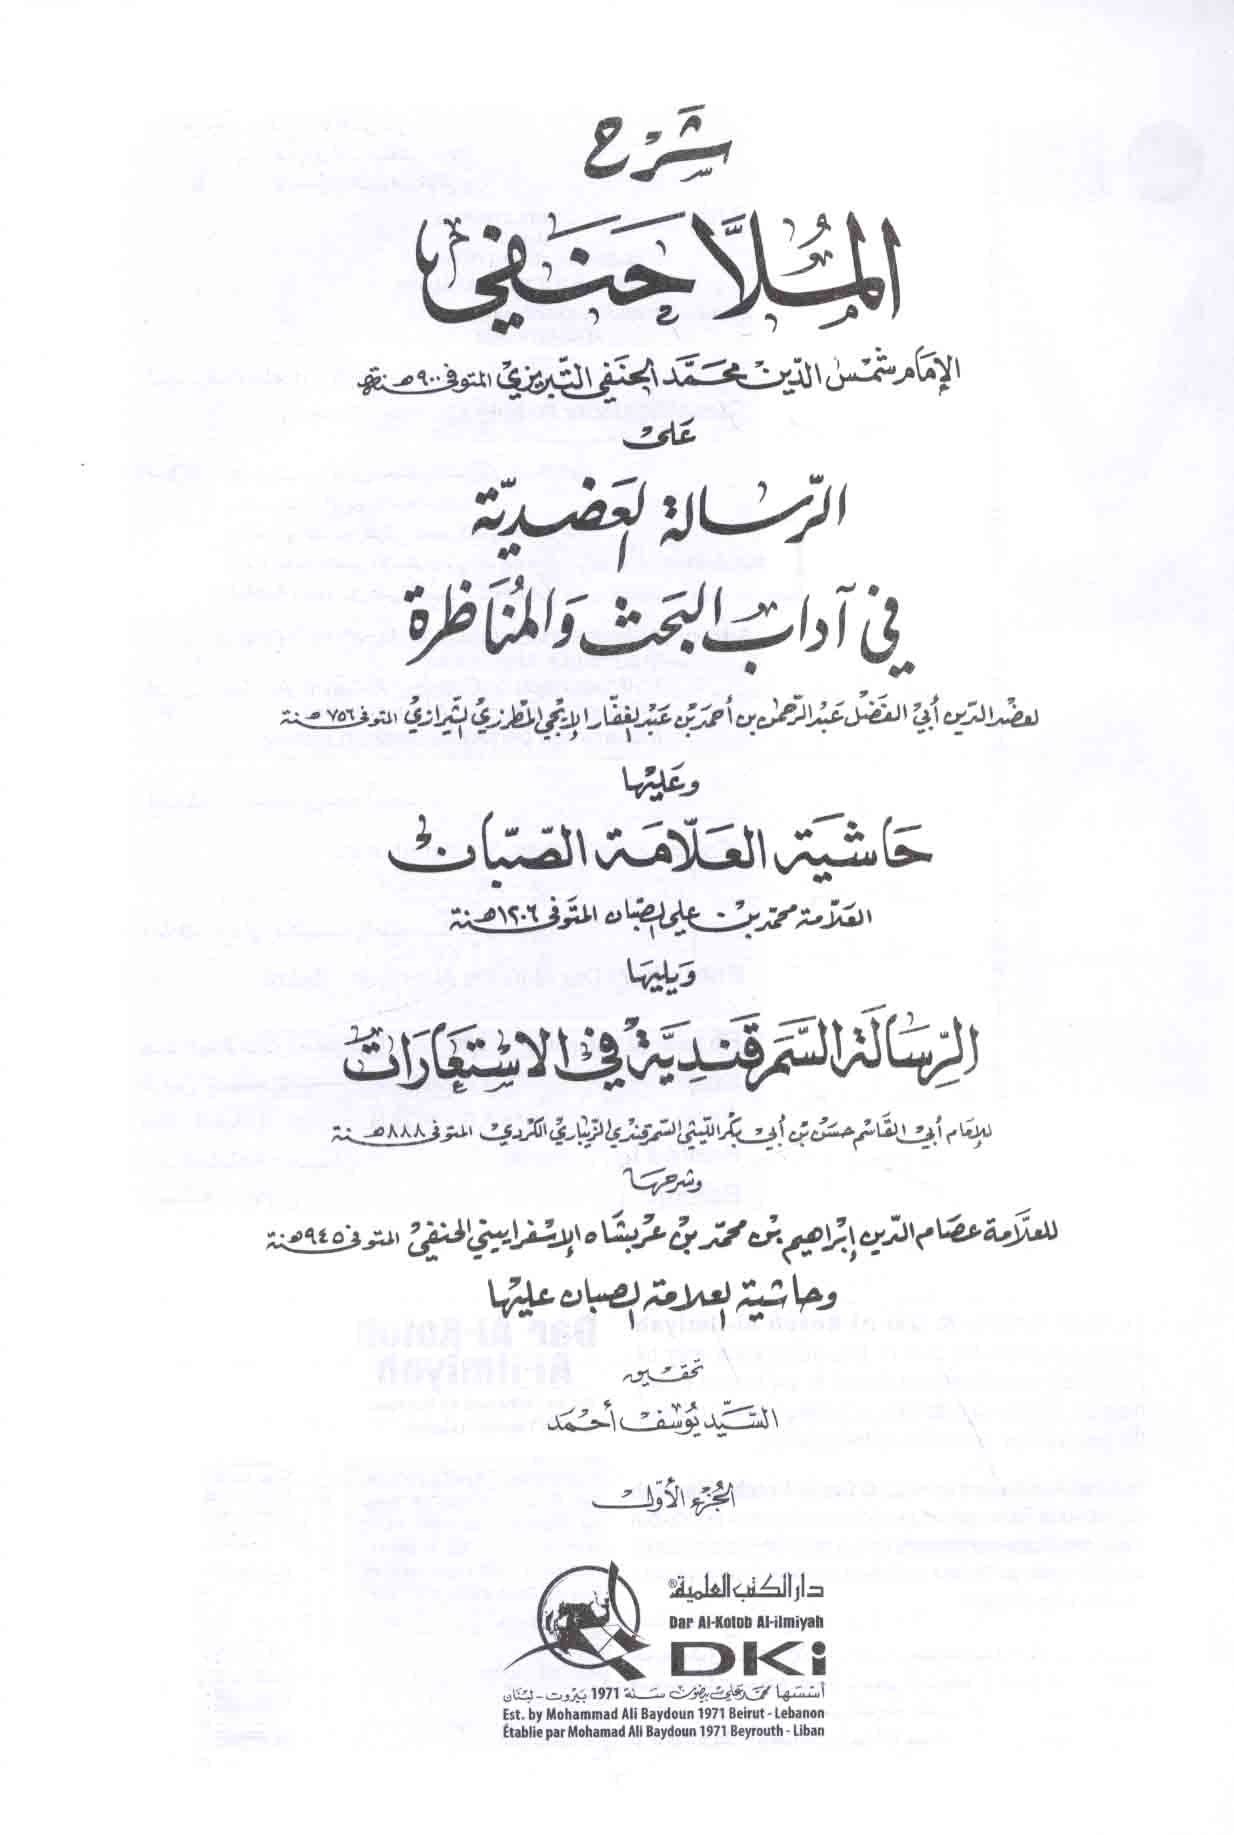 شرح
المُلَّا حَنَفي
الإمام شمس الدين محمَّد الحنفي التبريزي المتوفى ٩٠٠هـنة
عَلى
الرّسالة العضديّة
في آداب البَحث وَالمُنَاظرة
لعضد الدين أبي الفضل عبد الرحمن بن أحمد بن عبد الغفار الإيجي المطرزي الشيرازي المتوفى ٧٥٦هـنة
وعَليْها
حَاشية العَلّامَة الصّبّان
العلّامة محمد بن علي الصبان المتَوفى ١٢٠٦هـنة
وَيليهَا
الرّسَالَة السَّمرقَندِيَّة في الاسْتعَارَات
للإمام أبي القاسم حسن بن أبي بكر الليثي السمرقندي الزيباري الكردي المتوفى ٨٨٨هـنة
وشرحها
للعلَّامة عصام الدين إبراهيم بن محمّد بن عربشاه الإسفراييني الحنفي المتوفى ٩٤٥هـنة
وحاشية العلامة الصبان عليها
تحقيق
السَّيّد يُوسف أحمد
الجُزء الأوّل
دار الكتب العلمية®
Dar Al-Kotob Al-ilmiyah
DKi
أسسها محمد علي بيضون سنة 1971 بيروت - لبنان
Est. by Mohammad Ali Baydoun 1971 Beirut - Lebanon
Établie par Mohamad Ali Baydoun 1971 Beyrouth - Liban